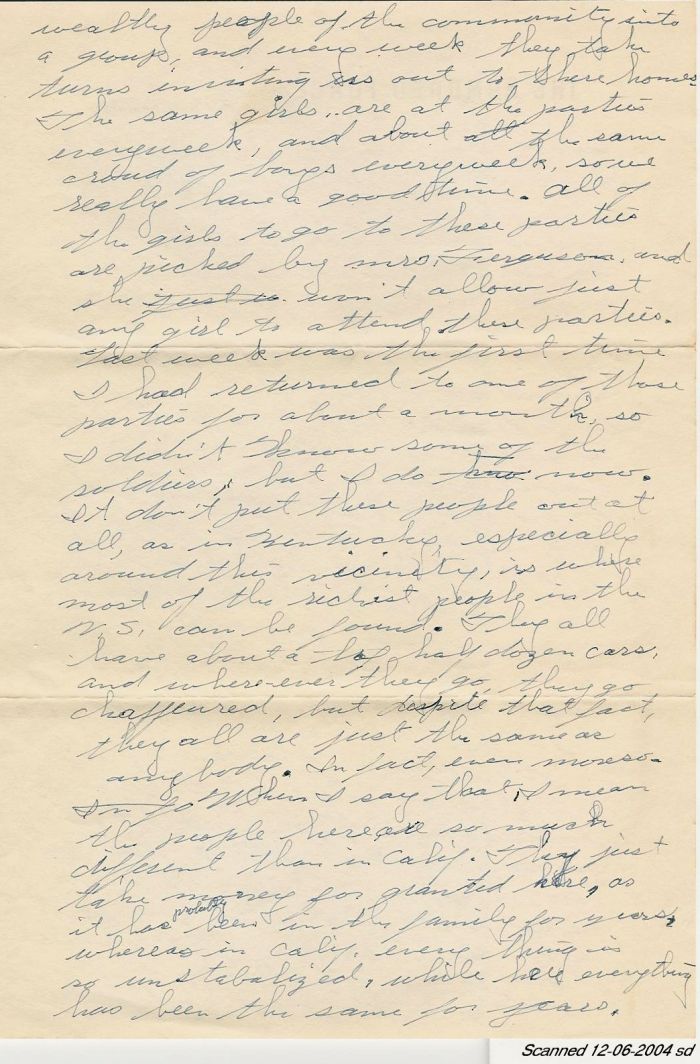 wealthy people of the community into
a group, and every week they take
turns inviting us out to there homes.
The same girls are at the parties
everyweek, and about all the same
croud of boys everyweek, so we
really have a good time. All of
the girls to go to these parties
are picked by Mrs. Ferguson, and
she just is won't allow just
any girl to attend these parties.
Last week was the first time
I had returned to one of those
parties for about a month, so
I didn't know some of the
soldiers, but I do now.
It don't put these people out at
all, as in Kentucky, especially
around this vicinity, is where
most of the richest people in the
U.S. can be found. They all
have about a half dozen cars,
and where-ever they go, they go
chaffeured, but despite that fact,
they all are just the same as
anybody. In fact, even moreso.
In go When I say that, I mean
the people here are so much
different than in Calif. They just
take money for granted here, as
it has probably been in the family for years,
whereas in Calif. every thing is
so unstabalized, while here everything
has been the same for years.
Scanned 12-06-2004 sd